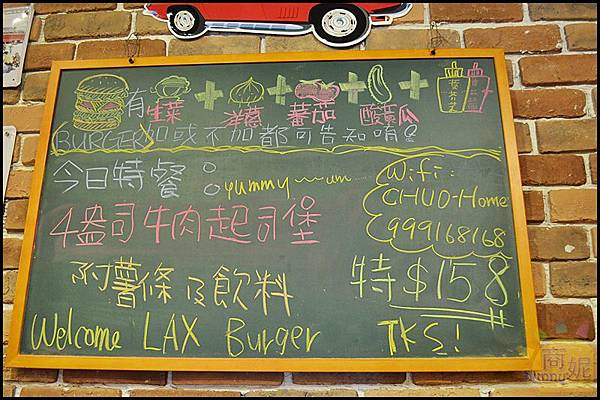 有 生菜 + 洋蔥 + 蕃茄 + 酸黃瓜 +
BURGER 加或不加都可告知唷!
今日特餐: yummy~um
4盎司牛肉起司堡
附薯條及飲料 特$158
Welcome LAX Burger TKS!
Wifi:
CHUO-Home
999168168
尚妮